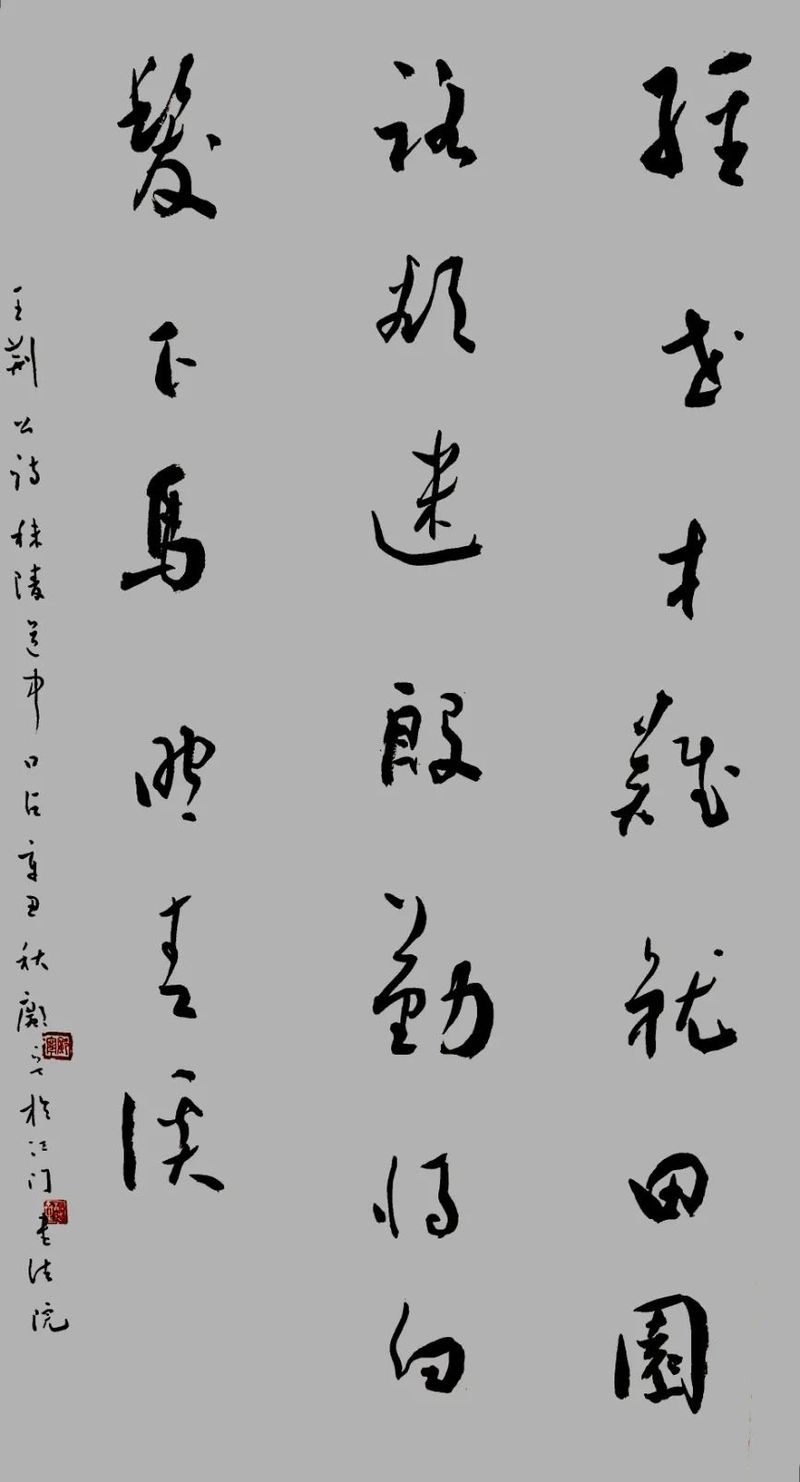 經世才難就田園
路欲迷殷勤將白
髮下馬照青溪
王荆公詩秣陵道中口占辛丑秋於江门書法院